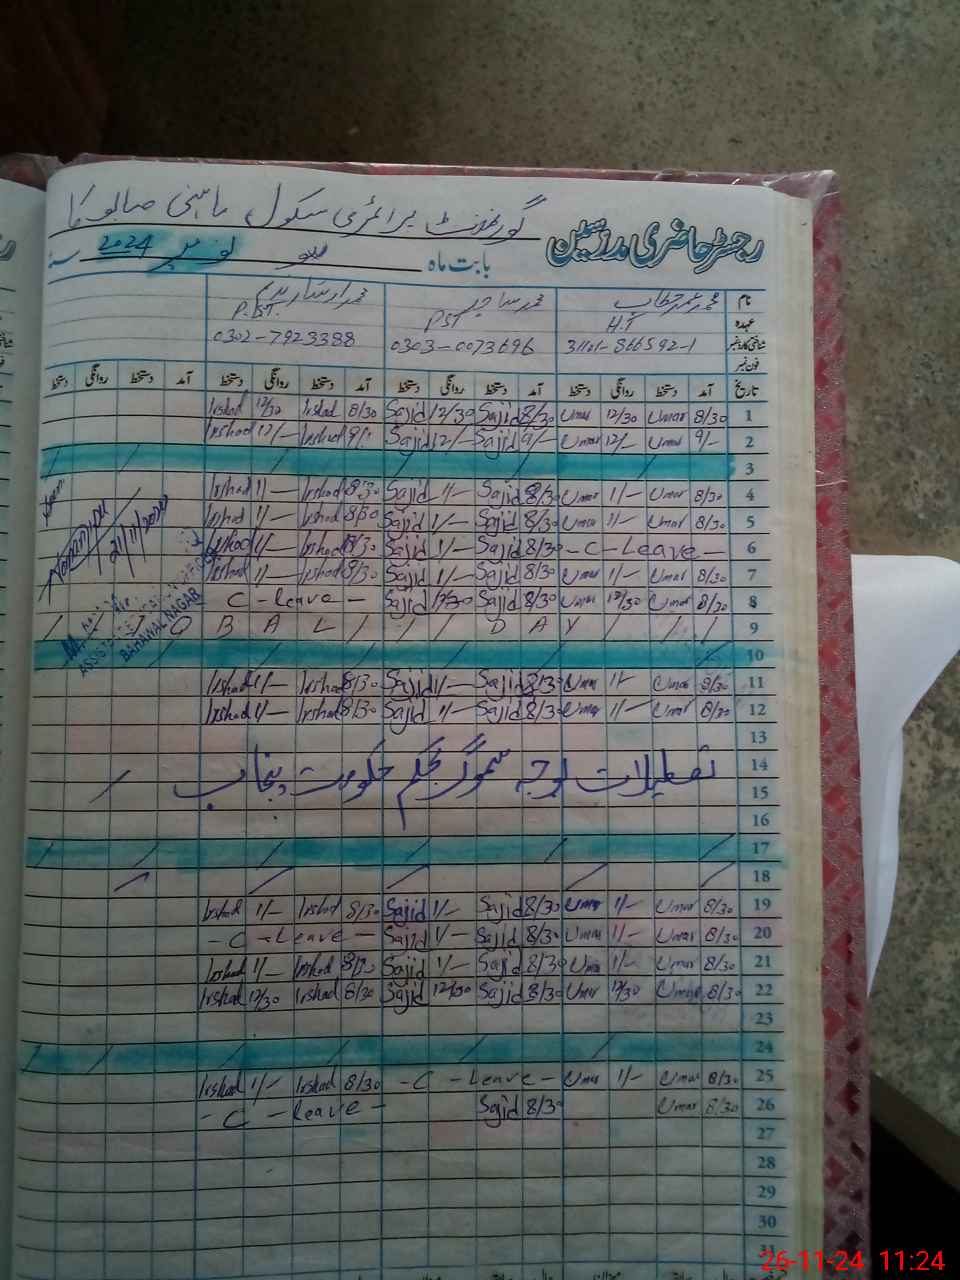 گورنمنٹ پرائمری سکول،
رجسٹر حاضری مدرسین
بابت ماہ نومبر 2024 سنہ
نام محمد عمر خطاب محمد ساجد محمد ارشاد ندیم
عہدہ H.T PST P.S.T.
شناختی کارڈ نمبر
فون نمبر 0303-0073696 0302-7923388
تاریخ آمد دستخط روانگی دستخط آمد دستخط روانگی دستخط آمد دستخط روانگی دستخط آمد دستخط روانگی دستخط
Irshad 12/30 Irshad 8/30 Sajid 12/30 Sajid 8/30 Umar 12/30 Umar 8/30 1
Irshad 12/- Irshad 9/- Sajid 12/- Sajid 9/- Umar 12/- Umar 9/- 2
3
Irshad 1/- Irshad 8/30 Sajid 1/- Sajid 8/30 Umar 1/- Umar 8/30 4
Irshad 1/- Irshad 8/30 Sajid 1/- Sajid 8/30 Umar 1/- Umar 8/30 5
Irshad 1/- Irshad 8/30 Sajid 1/- Sajid 8/30 -C-Leave- 6
Irshad 1/- Irshad 8/30 Sajid 1/- Sajid 8/30 Umar 1/- Umar 8/30 7
C-Leave- Sajid 12/30 Sajid 8/30 Umar 12/30 Umar 8/30 8
B A L / / / D A Y / / / 9
10
Irshad 1/- Irshad 8/30 Sajid 1/- Sajid 8/30 Umar 1/- Umar 8/30 11
Irshad 1/- Irshad 8/30 Sajid 1/- Sajid 8/30 Umar 1/- Umar 8/30 12
13
تعطیلات بوجہ سموگ بحکم حکومت پنجاب 14
15
16
17
18
Irshad 1/- Irshad 8/30 Sajid 1/- Sajid 8/30 Umar 1/- Umar 8/30 19
-C-Leave- Sajid 1/- Sajid 8/30 Umar 1/- Umar 8/30 20
Irshad 1/- Irshad 8/30 Sajid 1/- Sajid 8/30 Umar 1/- Umar 8/30 21
Irshad 12/30 Irshad 8/30 Sajid 12/30 Sajid 8/30 Umar 12/30 Umar 8/30 22
23
24
Irshad 1/- Irshad 8/30 -C-Leave- Umar 1/- Umar 8/30 25
-C-Leave- Sajid 8/30 Umar 8/30 26
27
28
29
30
31
21/11/2024
BAHAWALNAGAR
26-11-24 11:24